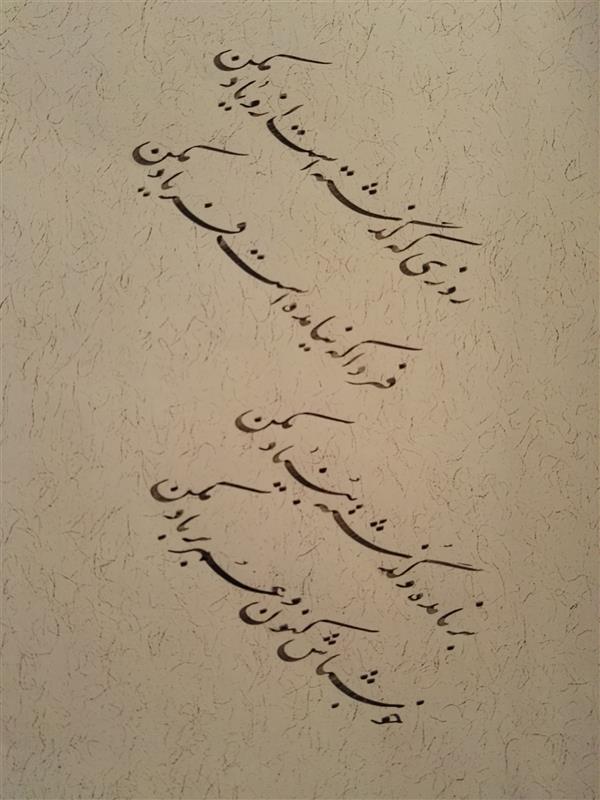 روزی که گذشته است ازو یاد مکن
فردا که نیامده است فریاد مکن
بر نامده و گذشته بنیاد مکن
خوشباش کنون و عمر بر باد مکن